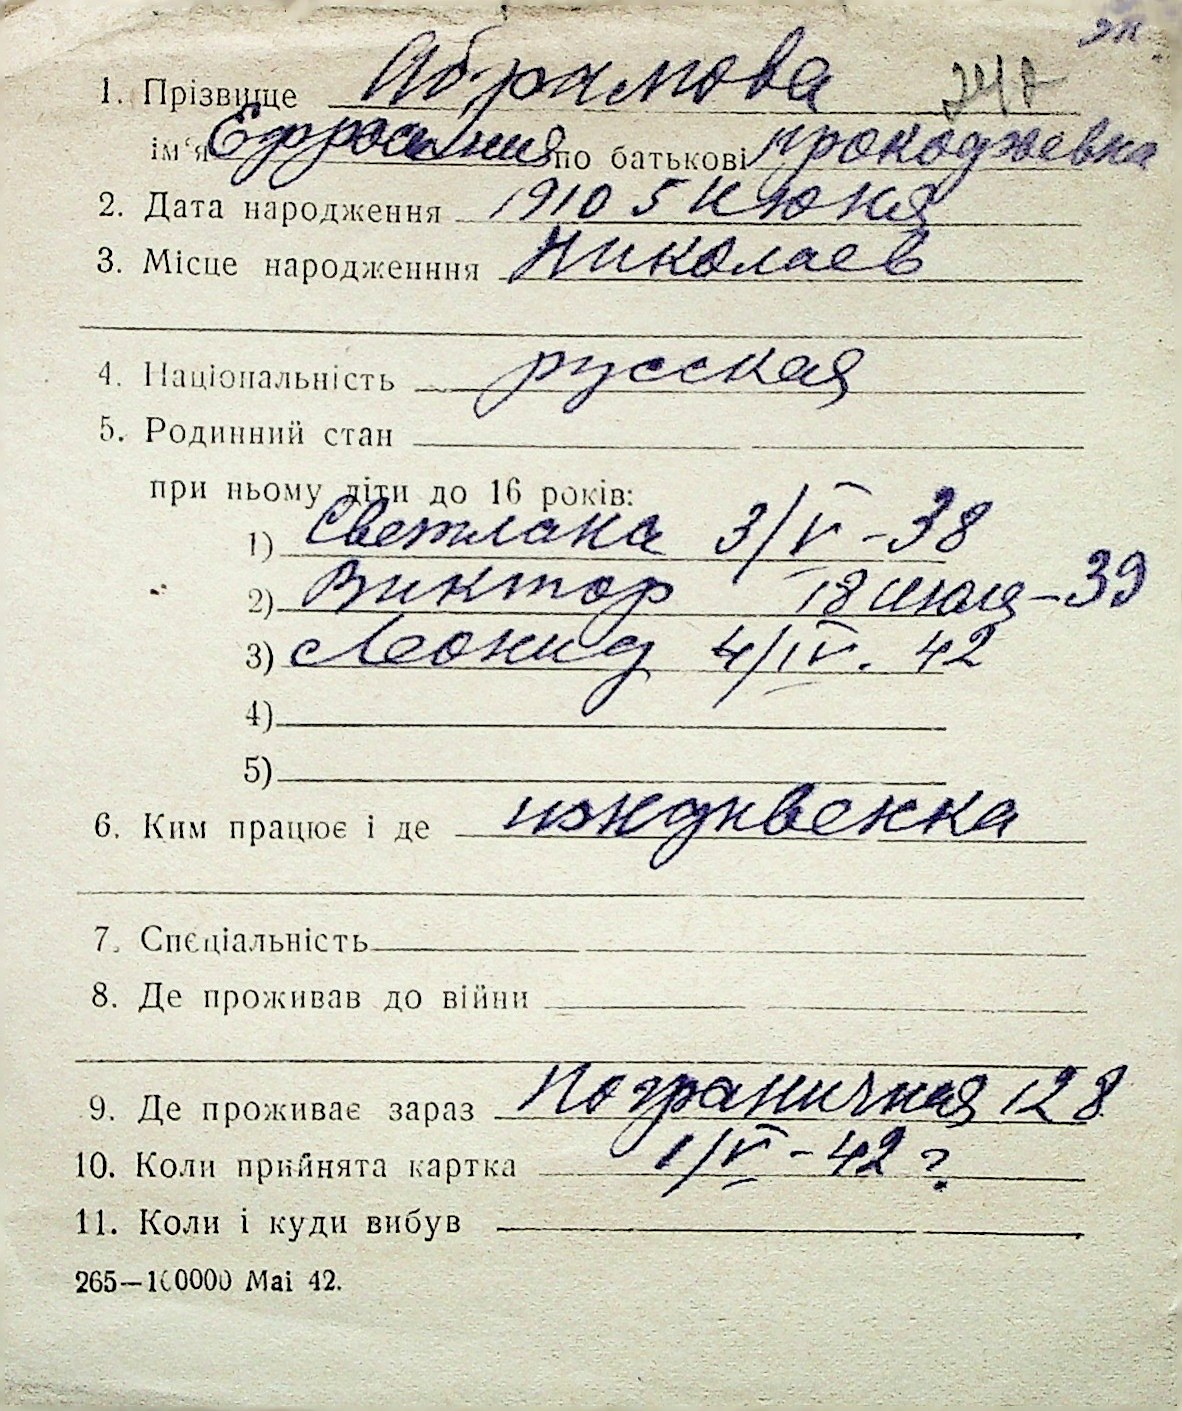 1. Прізвище Абрамова
ім'я Ефросиния по батькові
2. Дата народження 1910 5 июня
3. Місце народженння Николаев
4. Національність русская
5. Родинний стан
при ньому діти до 16 років:
1) Светлана 3/V - 38
2) Виктор 18 июля - 39
3) Леонид 4/IV. 42
4)
5)
6. Ким працює і де иждивенка
7. Спєціальність
8. Де проживав до війни
9. Де проживає зараз Пограничная 128
10. Коли прийнята картка 1/V - 42 г
11. Коли і куди вибув
265—100000 Mai 42.